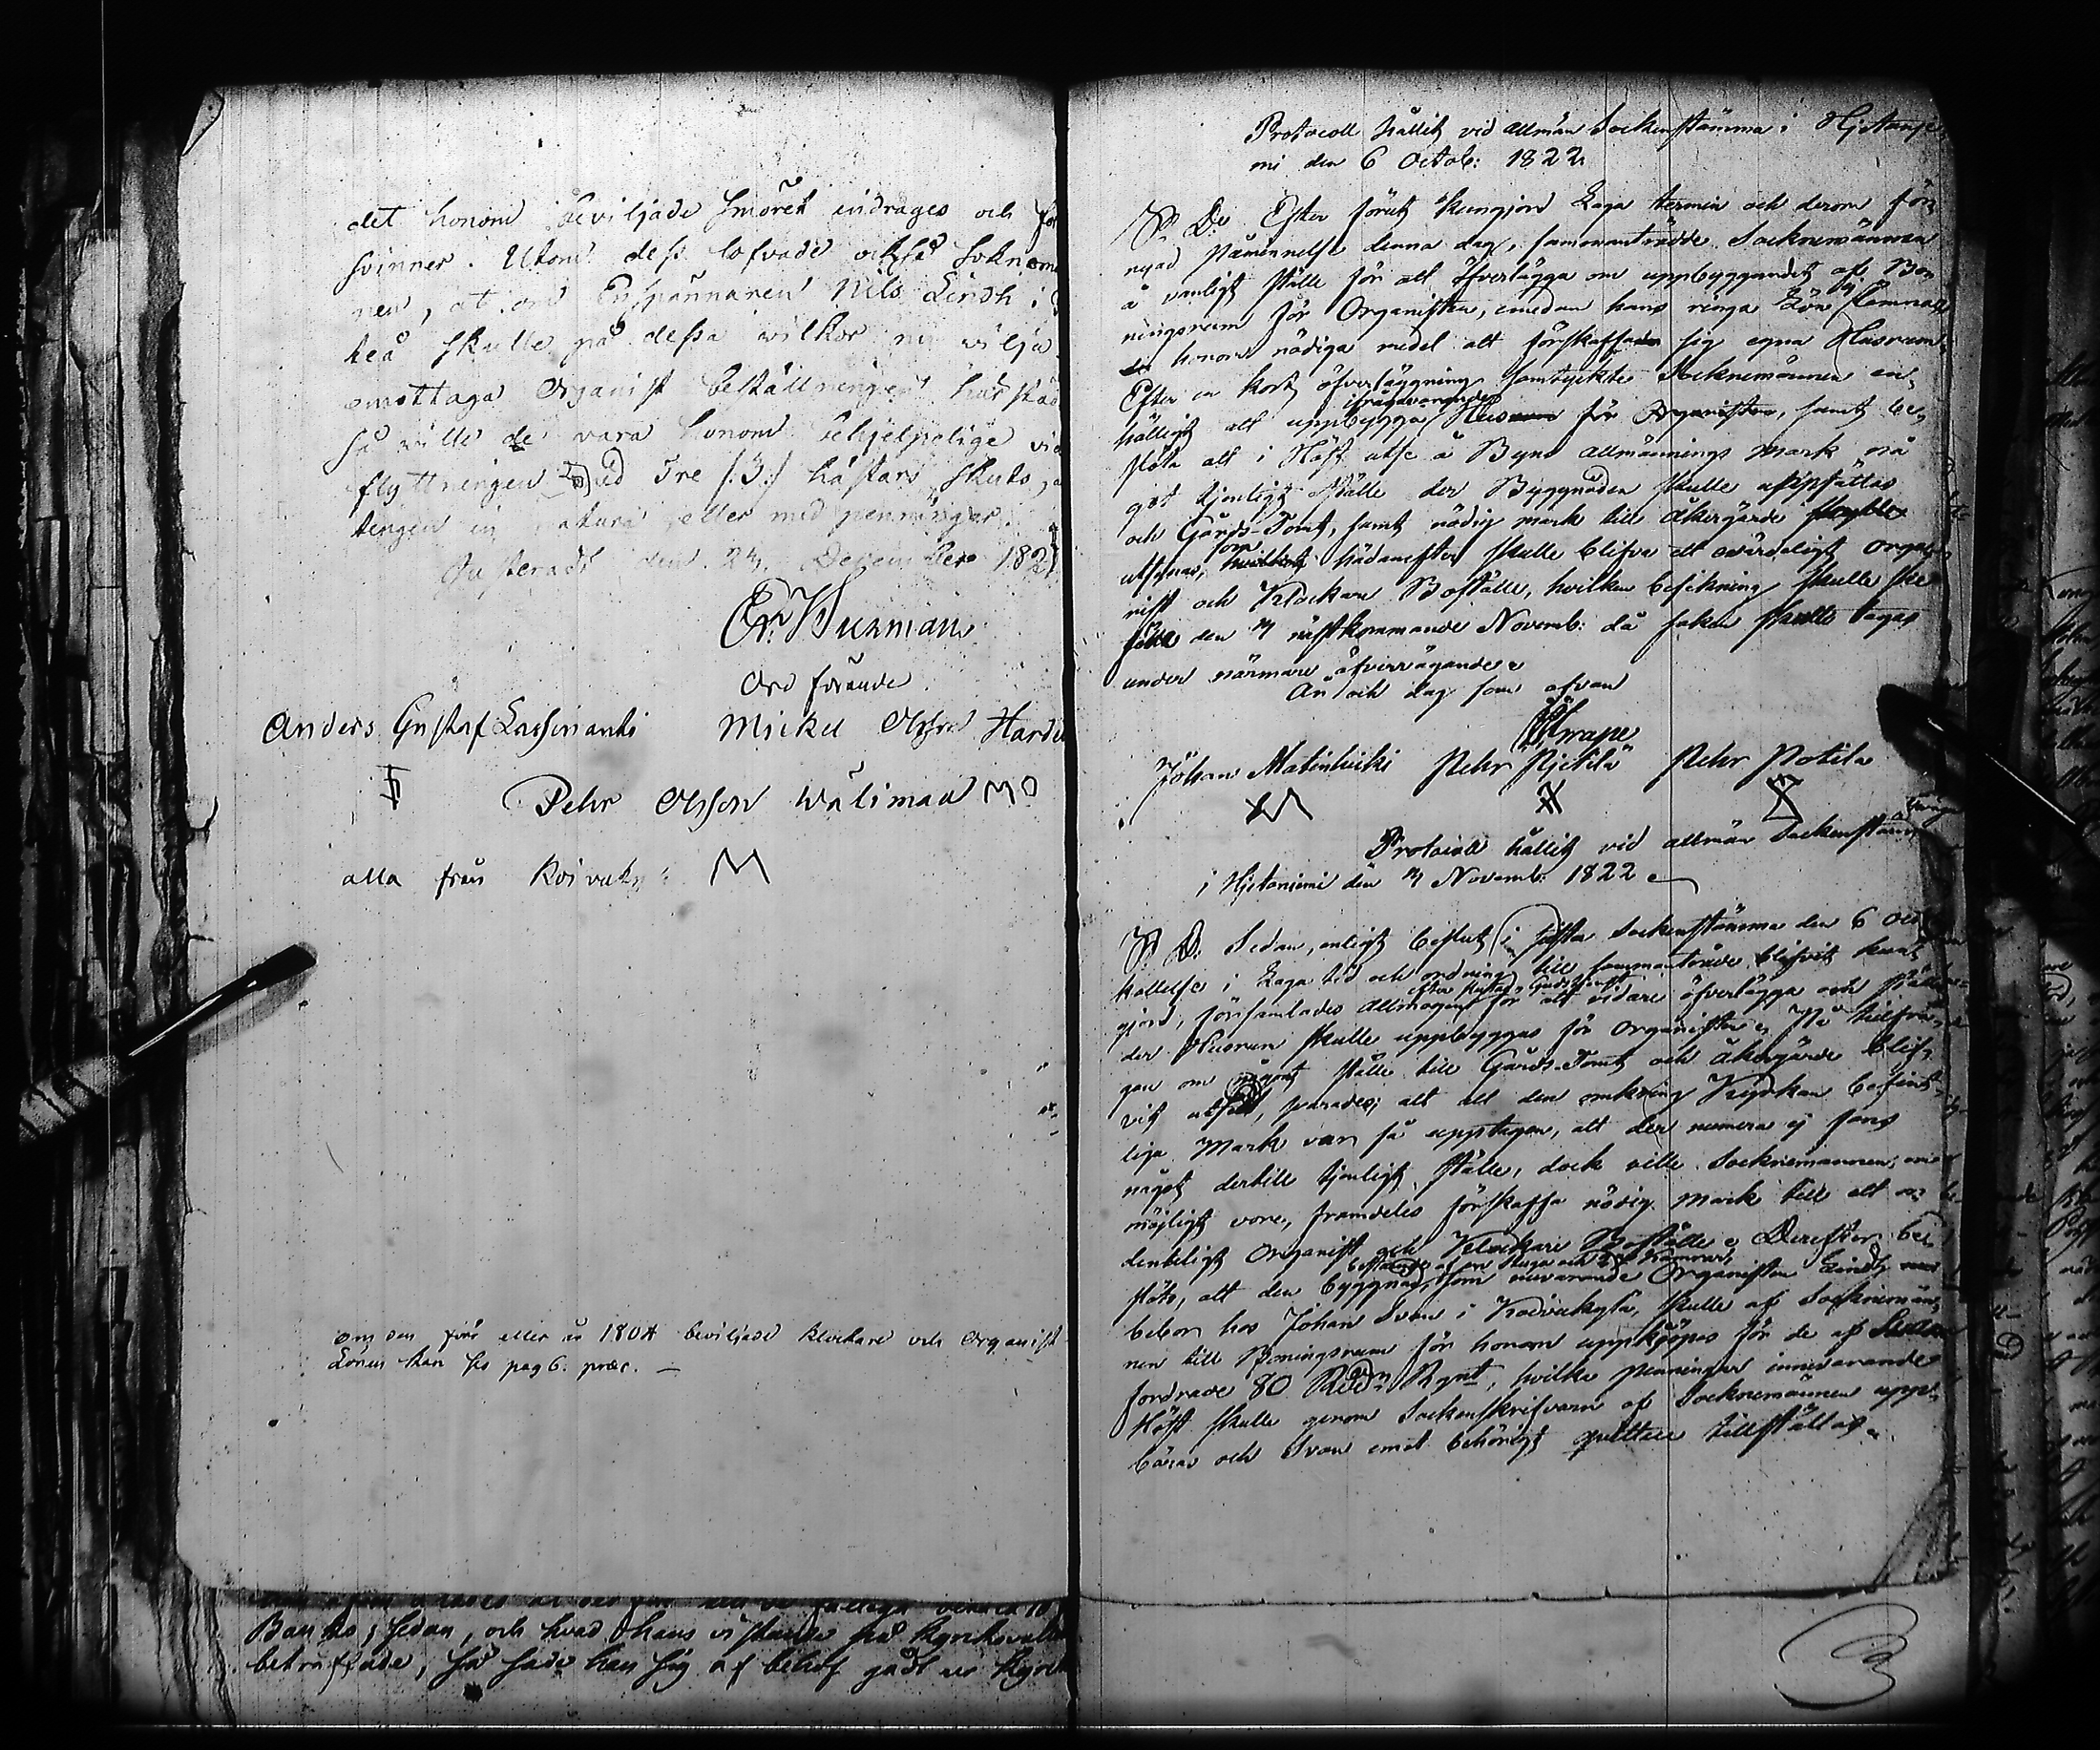 det honom beviljade Smöret indrages och för
svinner. Utom dess lofvade också Soknem
nen, at om Enspännaren Nils Lindh i
teå skulle på dessa wilkor nu vilja
emottaga Organist beställningen härstäd
så wille de vara honom behjelpelige vid
flyttningen med Tre /:3:/ hästars skuts,
tingen in natura eller med penningar.
Justerades den 24 December 182
Er. Wurman
Ordförande
Anders Gustaf Lassinanti Mickel Olsson Hard
Pehr Olsson Wälimaa
alla från Koivuky
om den före eller in 1804 beviljade klockare och Organist
Lönen kan ses pag 6. præc.
Banko; sedan, och hvad hans vistande på Kyrkovall
beträffade, så hade han sig af behof gådt ur Kyrk
Protocoll hållit vid allmän Sockenstämma i Hjetanje
mi den 6 Octob: 1822
S. D. Efter förut kungjord Laga termin och derom för
nyad påminnelse denna dag, sammanträdde Socknemännen
å vanligt ställe för att öfverlägga om uppbyggandet af Bo
ningsrum för Organisten, emedan hans ringa Lön ej lemnar
honom nödiga medel att förskaffa sig egna Husrum.
Efter en kort öfverläggning samtyckte Socknemännen en
hälligt att uppbygga ifrågavarande Husrum för Organisten, samt be
sluta att i Höst utse å Byns Allmännings mark nå
got tjenligt Ställe der Byggnaden skulle uppsättas
och Gårds-Tomt, samt nödig mark till åkergärde
utses, som hädanefter skulle blifva ett ovärdeligt Orga
nist och Klockare Boställe, hvilken besigtning skulle ske
den 4 nästkommande Novemb: då saken skulle tagas
under närmare öfvervägande.
År och dag som ofvan
Johan Matinheiki Pehr Pjetilä Pehr Potila
Protocoll hållit vid allmän Sockenstämma
i Hjetaniemi den 4 Novemb: 1822
S. D. Sedan, enligt beslut i sista Sockenstämma den 6 Oct
kallelse i Laga tid och ordning till sammanträde blifvit kun
gjord, församlades Allmogen efter slutad Gudstjenst för att vidare öfverlägga om stället
der Husrum skulle uppbyggas för Organisten. På tillfrå
gan om något ställe till Gårds-Tomt och åkergärde blif
vit utsedt, svarades; att all den omkring Kyrkan befint
liga Mark var så upptagen, att der numera ej fans
något dertill tjenligt ställe, dock ville Socknemännen, om
möjligt vore, framdeles förskaffa nödig mark till ett or
dentligt Organist och Klockare Boställe. Derefter be
slöts, att den byggnad, bestående af en Stuga och Kammare som nuvarande Organisten Lindh
bebor hos Johan Svan i Koivukylä, skulle af Socknemän
nen till Boningsrum för honom uppköpas för de af Svan
fordrade 80 Rdr Rgnt, hvilka penningar innevarande
Höst skulle genom Sockenskrifvaren af Socknemännen upp
bäras och Svan emot behörigt qvittens tillställas.